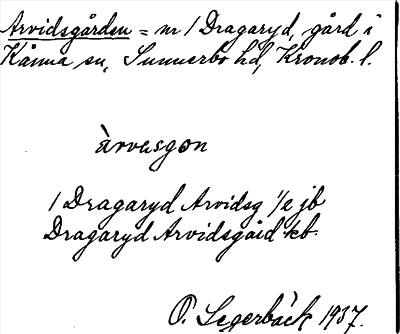 Arvidsgården = nr 1 Dragaryd, gård i
Kånna sn, Sunnerbo hd, Kronob. l.
àrvesgon
1 Dragaryd Arvidsg 1/2 jb
Dragaryd Arvidsgård kb.
O. Segerbäck 1937.